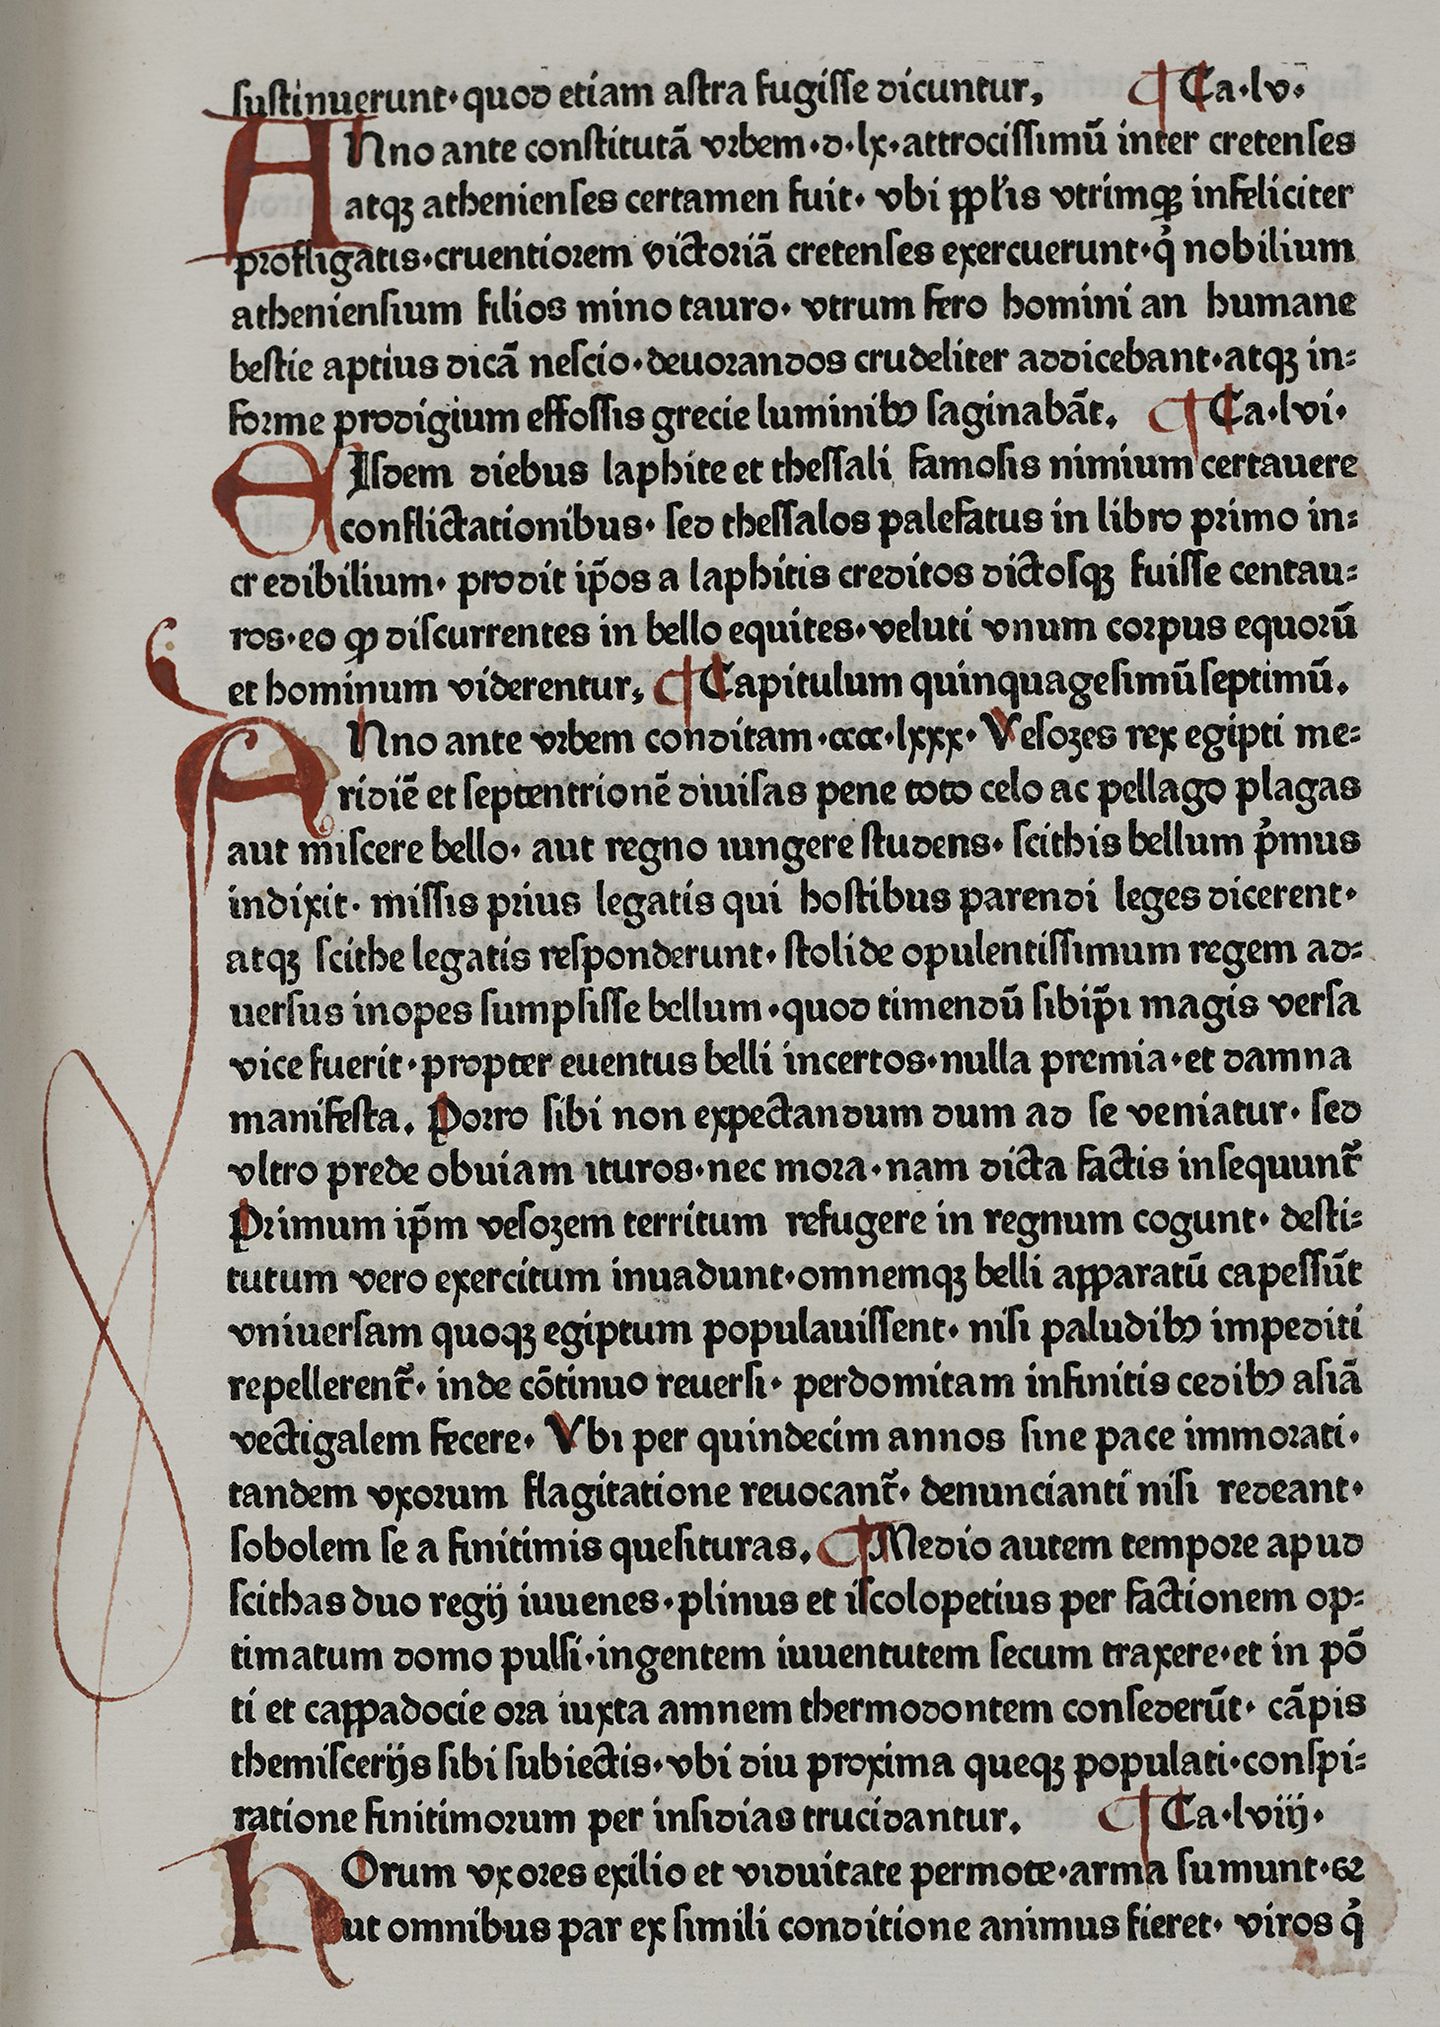 sustinuerunt· quod etiam astra fugisse dicuntur, ¶ Ca·lv·
ANno ante constitutā vrbem·d·lx·attrocissimū inter cretenses
atqꝫ athenienses certamen fuit· vbi ꝑpłis vtrimqꝫ infeliciter
profligatis·cruentiorem victoriā cretenses exercuerunt·q̇ nobilium
atheniensium filios mino tauro· vtrum fero homini an humane
bestie aptius dicā nescio·deuorandos crudeliter addicebant·atqꝫ in⸗
forme prodigium effossis grecie luminibꝰ saginabāt. ¶ Ca·lvi·
EIsdem diebus laphite et thessali famosis nimium certauere
conflictationibus· sed thessalos palefatus in libro primo in⸗
credibilium· prodit ip̄os a laphitis creditos dictosqꝫ fuisse centau⸗
ros·eo ꝙ discurrentes in bello equites·veluti vnum corpus equorū
et hominum viderentur, ¶ Capitulum quinquagesimū septimū.
ANno ante vrbem conditam·cccc·lxxx· Vesozes rex egipti me⸗
ridiē et septentrionē diuisas pene toto celo ac pellago plagas
aut miscere bello· aut regno iungere studens· scithis bellum pͥmus
indixit· missis prius legatis qui hostibus parendi leges dicerent·
atqꝫ scithe legatis responderunt· stolide opulentissimum regem ad⸗
uersus inopes sumpsisse bellum·quod timendū sibip̄i magis versa
vice fuerit·propter euentus belli incertos·nulla premia·et damna
manifesta. Porro sibi non expectandum dum ad se veniatur· sed
vltro prede obuiam ituros·nec mora·nam dicta factis insequunt̄
Primum ip̄m vesozem territum refugere in regnum cogunt· desti⸗
tutum vero exercitum inuadunt·omnemqꝫ belli apparatū capessūt
vniuersam quoqꝫ egiptum populauissent· nisi paludibꝰ impediti
repellerent̄· inde cōtinuo reuersi· perdomitam infinitis cedibꝰ asiā
vectigalem fecere· Vbi per quindecim annos sine pace immorati·
tandem vxorum flagitatione reuocant̄· denuncianti nisi redeant·
sobolem se a finitimis quesituras. ¶ Medio autem tempore apud
scithas duo regij iuuenes·plinus et iscolopetius per factionem op⸗
timatum domo pulsi·ingentem iuuentutem secum traxere·et in pō
ti et cappadocie ora iuxta amnem thermodontem consederūt· cāpis
themiscerijs sibi subiectis·vbi diu proxima queqꝫ populati·conspi⸗
ratione finitimorum per insidias trucidantur. ¶ Ca·lviij·
HOrum vxores exilio et viduitate permote·arma sumunt·⁊
ut omnibus par ex simili conditione animus fieret· viros q̇